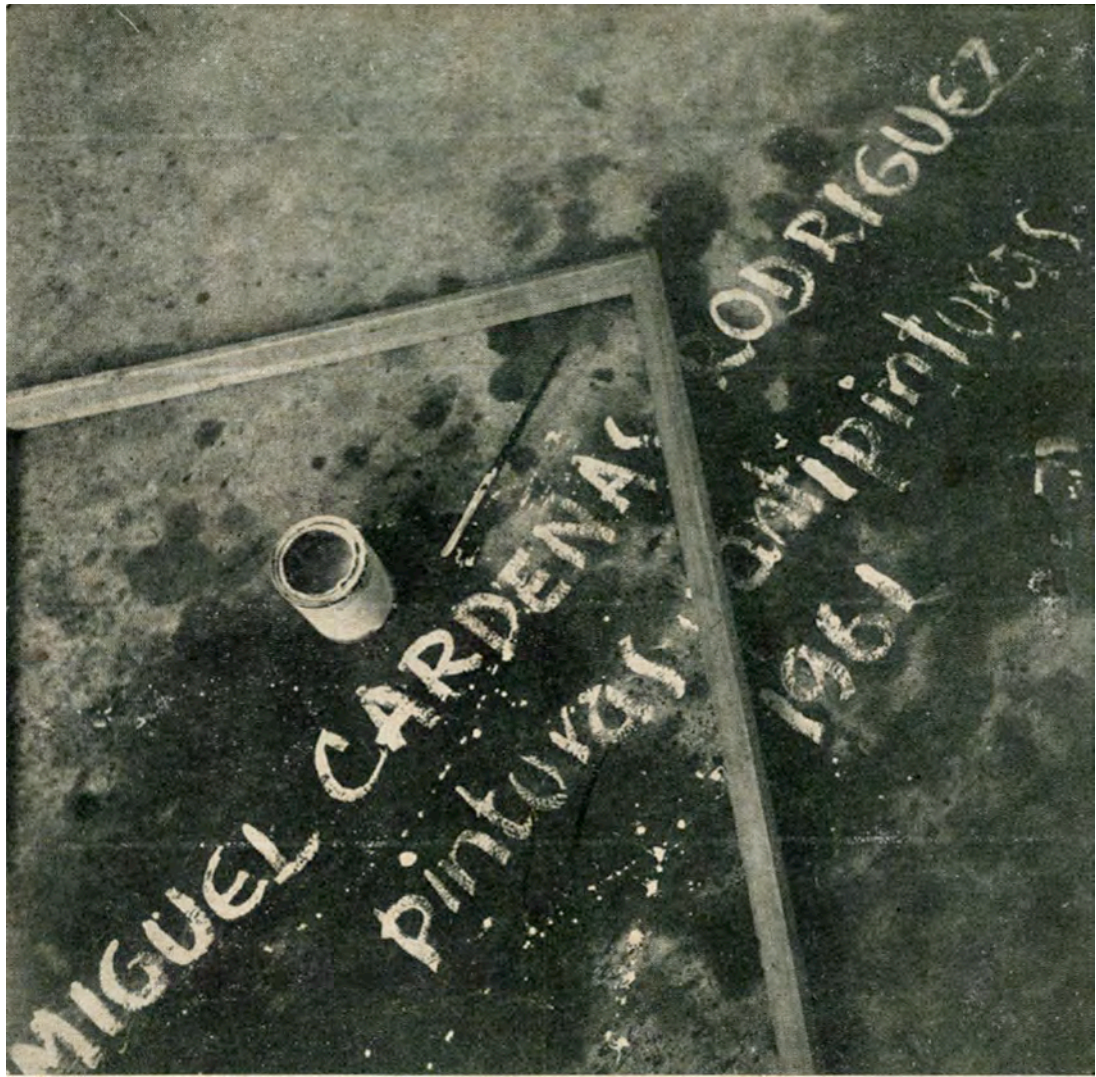 MIGUEL CARDENAS RODRIGUEZ
pinturas antipinturas
1961